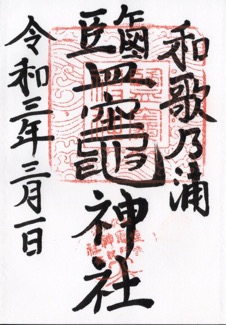 和歌乃浦
鹽竈神社
令和三年三月一日